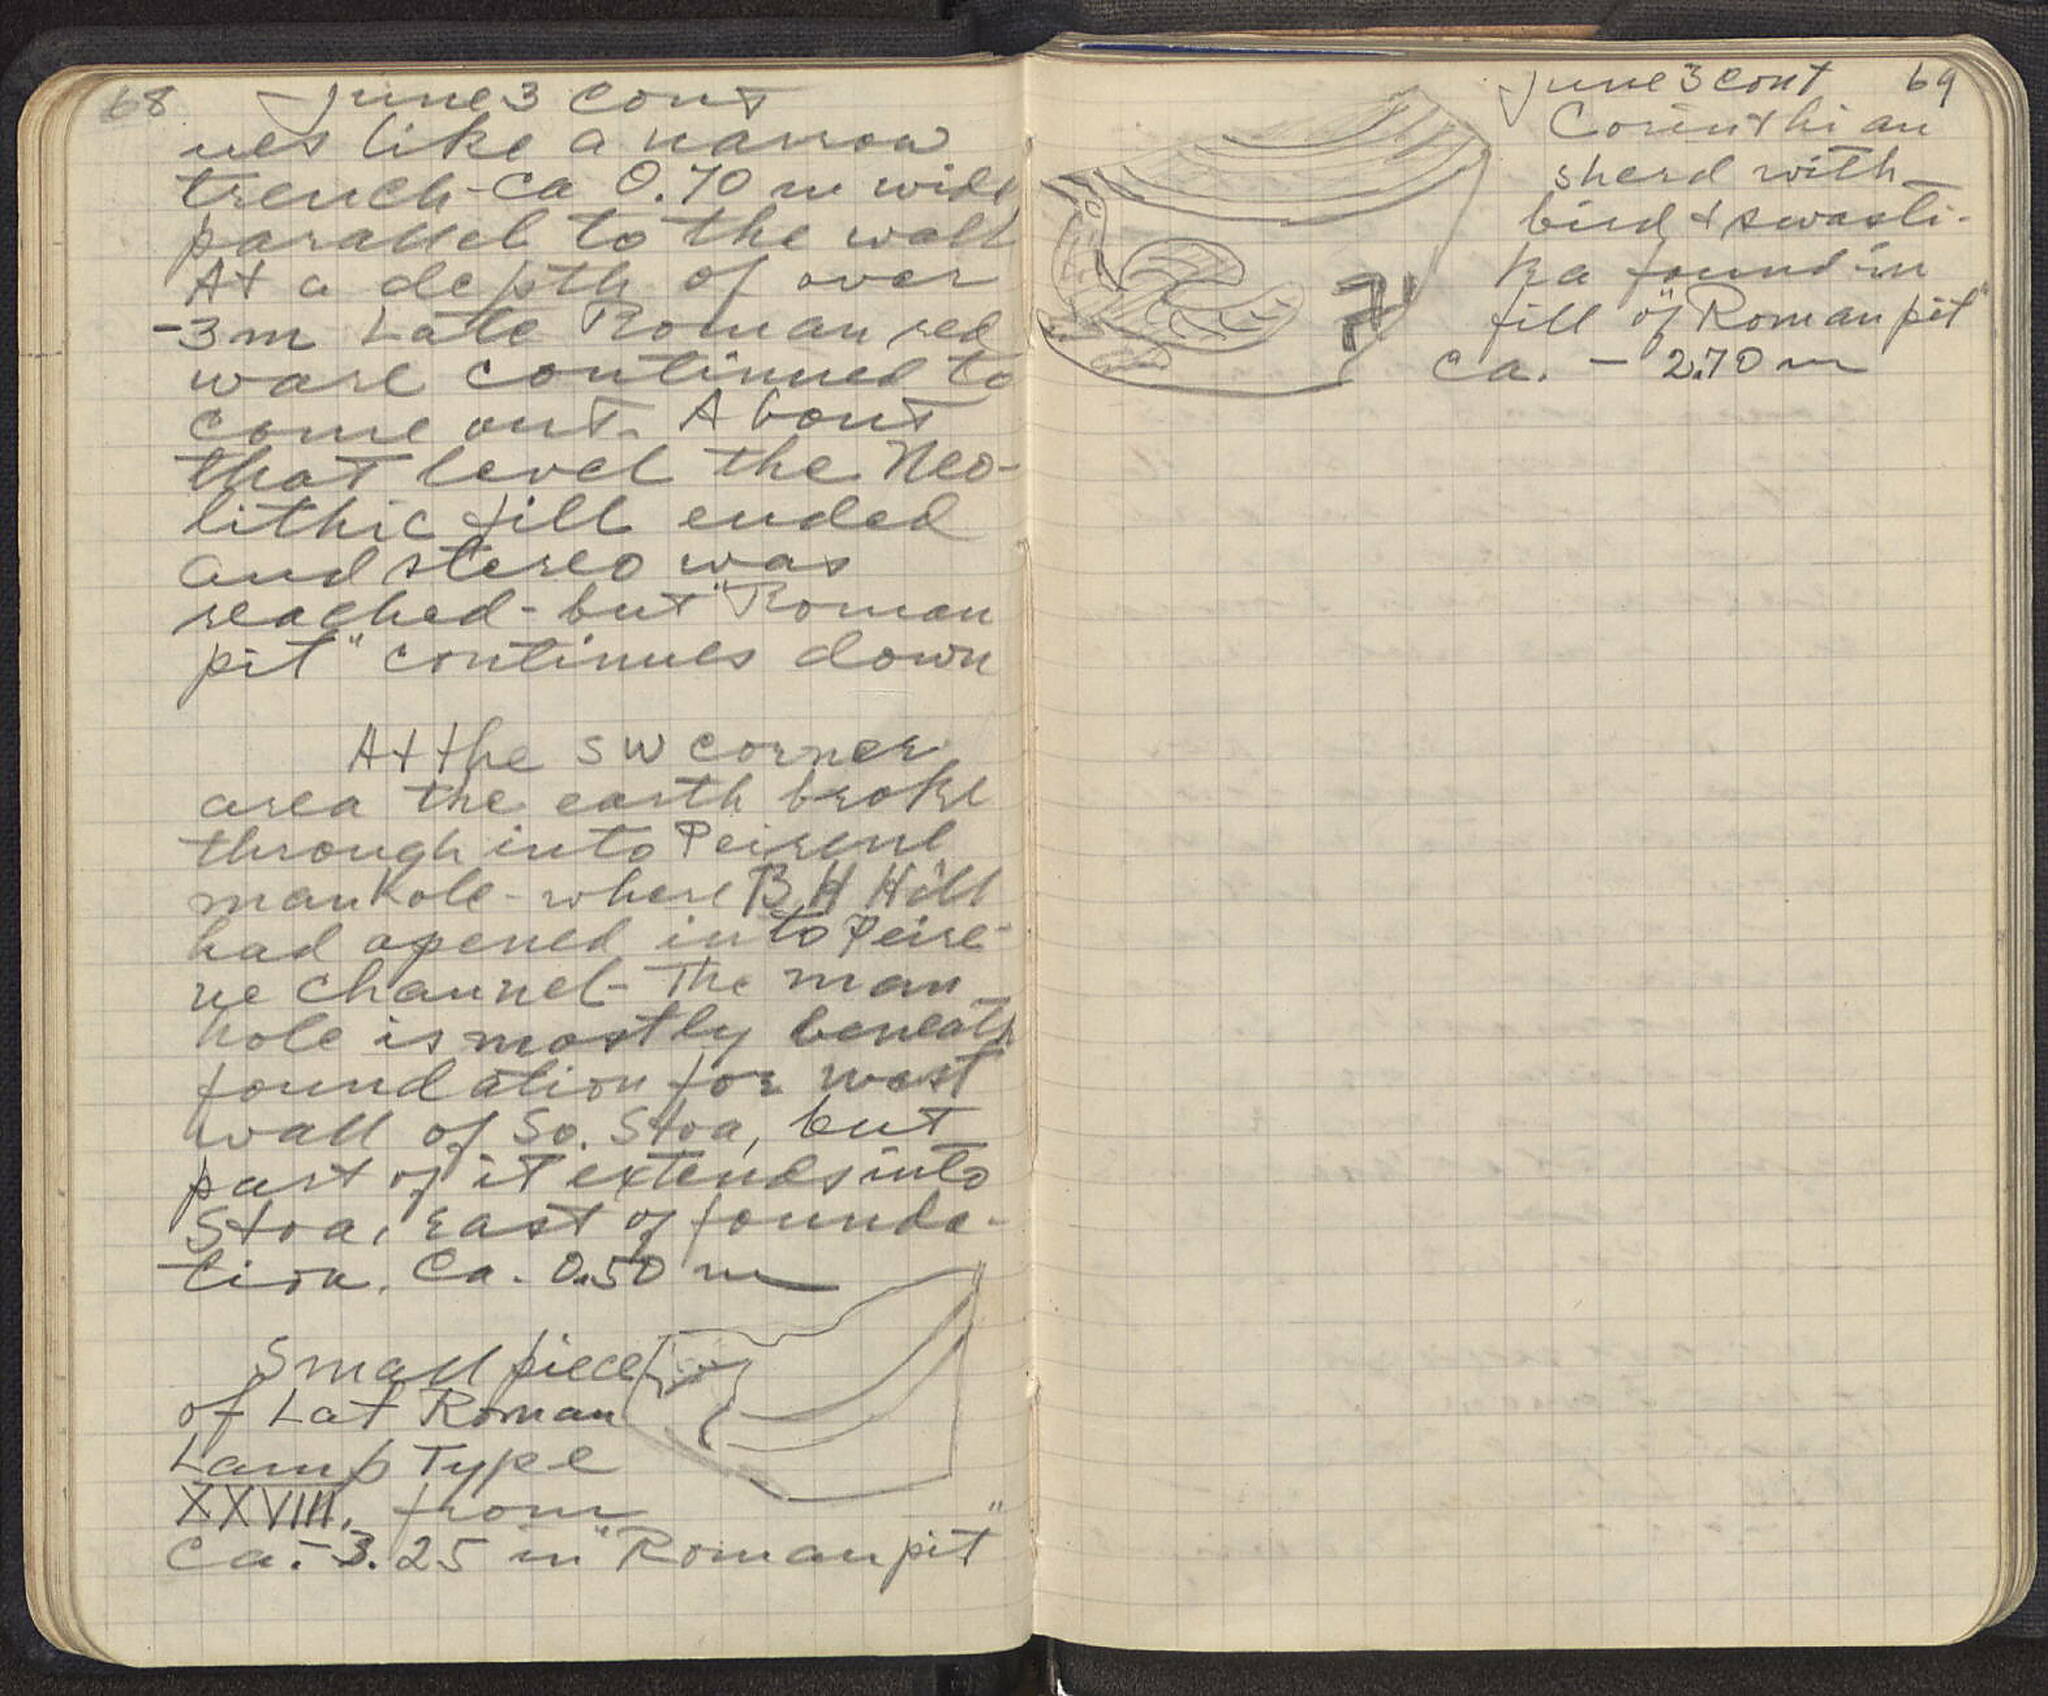 68 June 3 cont
ues like a narrow
trench - ca 0.70 m wide
parallel to the wall
At a depth of over
-3m Late Roman red
ware continued to
come out. About
that level the Neo-
lithic fill ended
and stereo was
reached - but "Roman
pit" continues down
At the SW corner
area the earth broke
through into Peirene
manhole - where B H Hill
had opened into Peire-
ne channel - The man
hole is mostly beneath
foundation for west
wall of So. Stoa, but
part of it extends into
Stoa, east of founda-
tion. Ca. 0.50 m
Small piece
of Lat Roman
Lamp Type
XXVIII. from
ca. -3.25 in "Roman pit"
June 3 cont 69
Corinthian
sherd with
bird & swasti-
ka found in
fill of "Roman pit"
ca. - 2.70 m